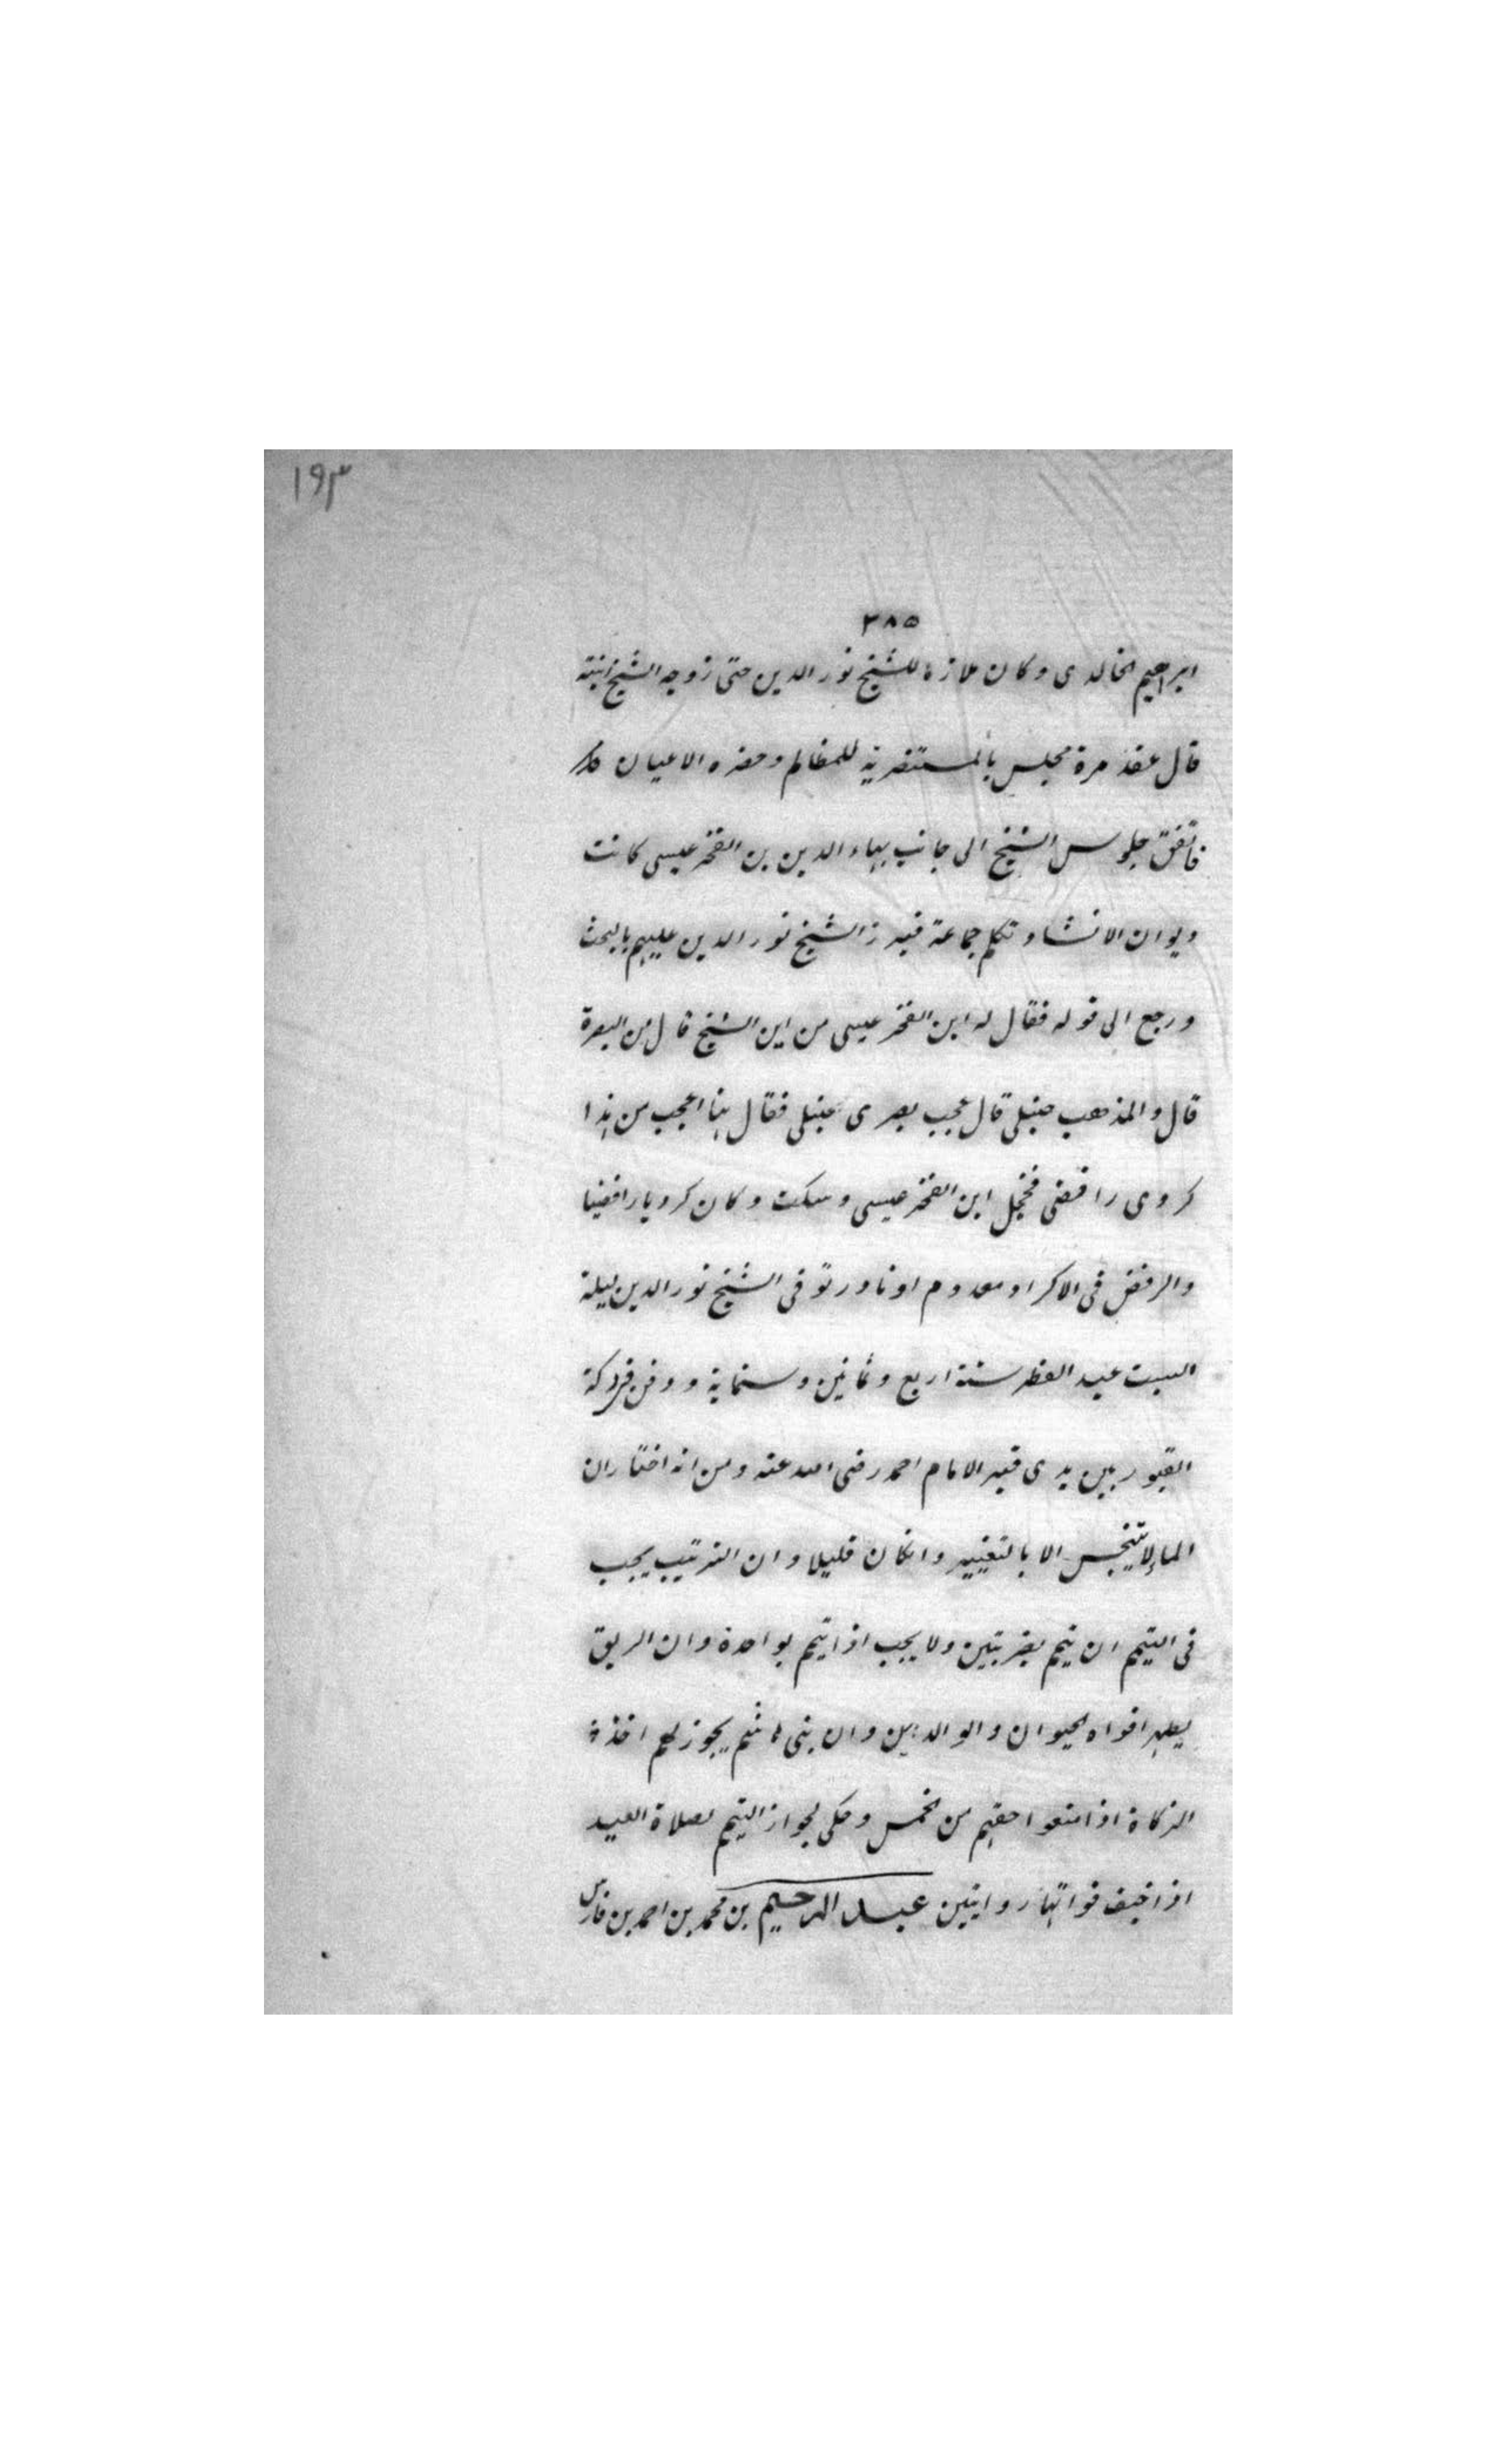 ١٩٣
٣٨٥
ابراهيم الخالدى وكان ملازما للشيخ نور الدين حتى زوجه الشيخ ابنته
قال عقد مرة مجلس بالمستنصرية للمظالم وحضره الاعيان
فاتفق جلوس الشيخ الى جانب بهاء الدين بن الفخر عيسى كاتب
ديوان الانشاء وتكلم جماعة فبرز الشيخ نور الدين عليهم بالبحث
ورجع الى قوله فقال له ابن الفخر عيسى من اين الشيخ قال من البصرة
قال والمذهب حنبلى قال عجب بصرى حنبلى فقال هنا اعجب من هذا
كردى رافضى فخجل ابن الفخر عيسى وسكت وكان كرديا رافضيا
والرفض فى الاكراد معدوم او نادر توفى الشيخ نور الدين ليلة
السبت عيد الفطر سنة اربع وثمانين وستماية ودفن فى دكة
القبور بين يدى قبر الامام احمد رضى الله عنه ومن انه اختار ان
الماء لا ينجس الا بالتغيير وان كان قليلا وان الترتيب يجب
فى التيمم ان تيمم بضربتين ولا يجب اذا تيمم بواحدة وان الريق
يطهر افواه الحيوان والوالدين وان بنى هاشم يجوز لهم اخذ
الزكاة اذا منعوا حقهم من الخمس وحكى بجواز التيمم لصلاة العيد
اذا خيف فواتها روايتين عبد الرحيم بن محمد بن احمد بن فارس